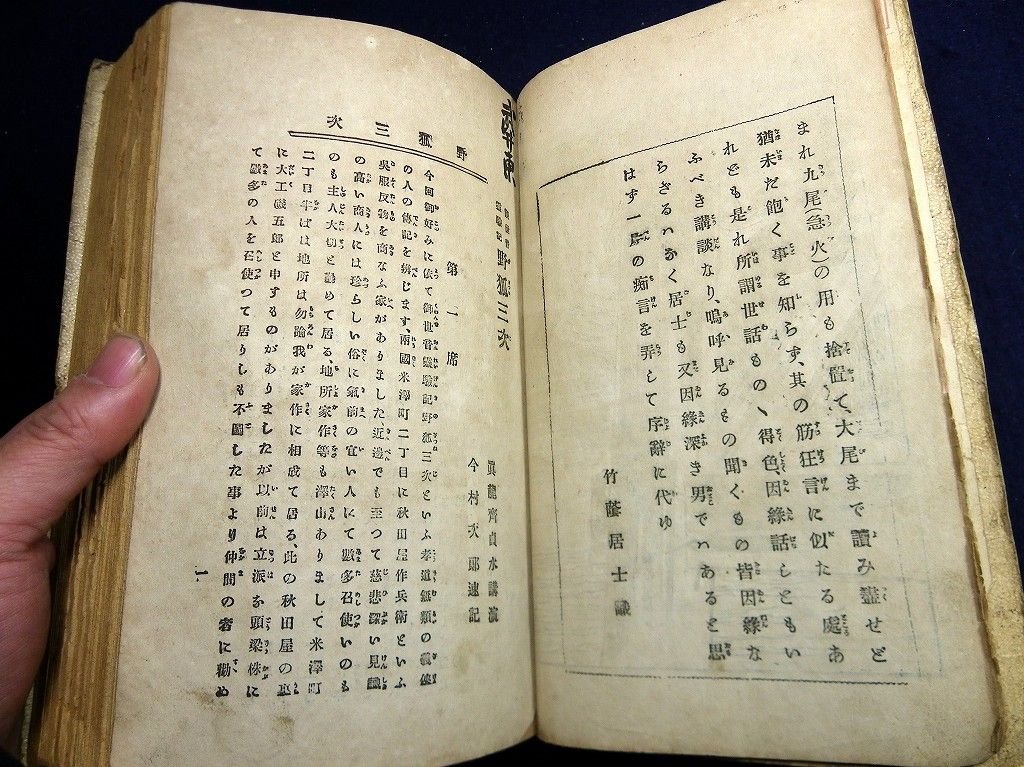 まれ九尾(急火)の用も捨置て、大尾まで讀み盡せど
猶未だ飽く事を知らず、其の筋狂言に似たる處あ
れども是れ所謂世話ものゝ得色、因緣話しともい
ふべき講談なり、嗚呼見るもの聞くもの皆因緣な
らざるハなく居士も又因緣深き男でハあると思
はず一扇の痴言を弄して序辭に代ゆ
竹藤居士識
野狐三次
眞龍齊貞水講演
今村次郎速記
第一席
今回御好みに依て御世話靈驗記野狐三次といふ孝道無類の義俠
の人の傳記を辨じます、兩國米澤町二丁目に秋田屋作兵衛といふ
呉服反物を商なふ家がありました、近邊でも至つて慈悲深い見識
の高い商人には珍らしい俗に氣前の宜い人にて數多召使いのも
のも主人大切と勤めて居る、地所家作等も澤山ありまして米澤町
二丁目半ばは地所は勿論我が家作に相成て居る、此の秋田屋の裏
に大工磯五郎と申すものがありましたが以前は立派な頭梁株に
て數多の人を召使つて居りしも不圖した事より仲間の者に勸め
野狐三次
一